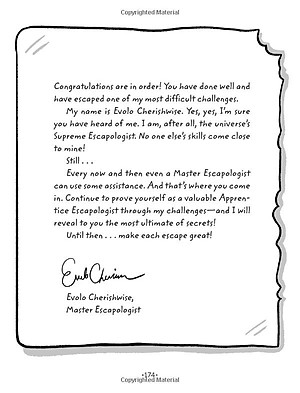 Copyrighted Material
Congratulations are in order! You have done well and
have escaped one of my most difficult challenges.
My name is Evolo Cherishwise. Yes, yes, I'm sure
you have heard of me. I am, after all, the universe's
Supreme Escapologist. No one else's skills come close
to mine!
Still . . .
Every now and then even a Master Escapologist
can use some assistance. And that's where you come
in. Continue to prove yourself as a valuable Appren-
tice Escapologist through my challenges—and I will
reveal to you the most ultimate of secrets!
Until then . . . make each escape great!
Evolo Cherishwise,
Master Escapologist
•174•
Copyrighted Material